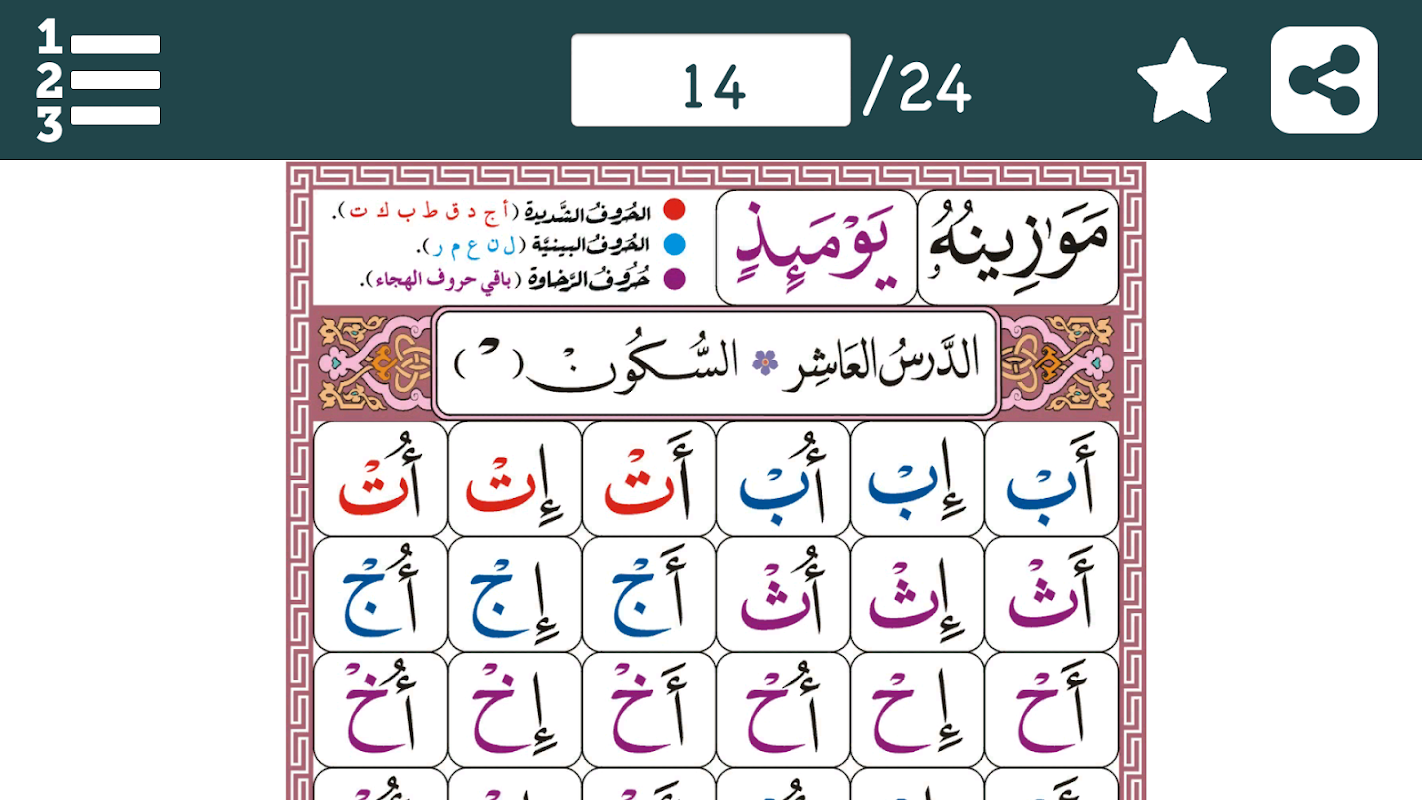 1
2
3
14 /24
مَوَٰزِينُهُۥ يَوْمَئِذٍ
الحُرُوفُ الشَّدِيدة (أ ج د ق ط ب ك ت).
الحُرُوفُ البينيَّة (ل ن ع م ر).
حُرُوفُ الرَّخاوة (باقي حروف الهجاء).
الدَّرسُ العَاشِر السُّكُونْ (ْ)
أَبْ إِبْ أُبْ أَتْ إِتْ أُتْ
أَثْ إِثْ أُثْ أَجْ إِجْ أُجْ
أَحْ إِحْ أُحْ أَخْ إِخْ أُخْ